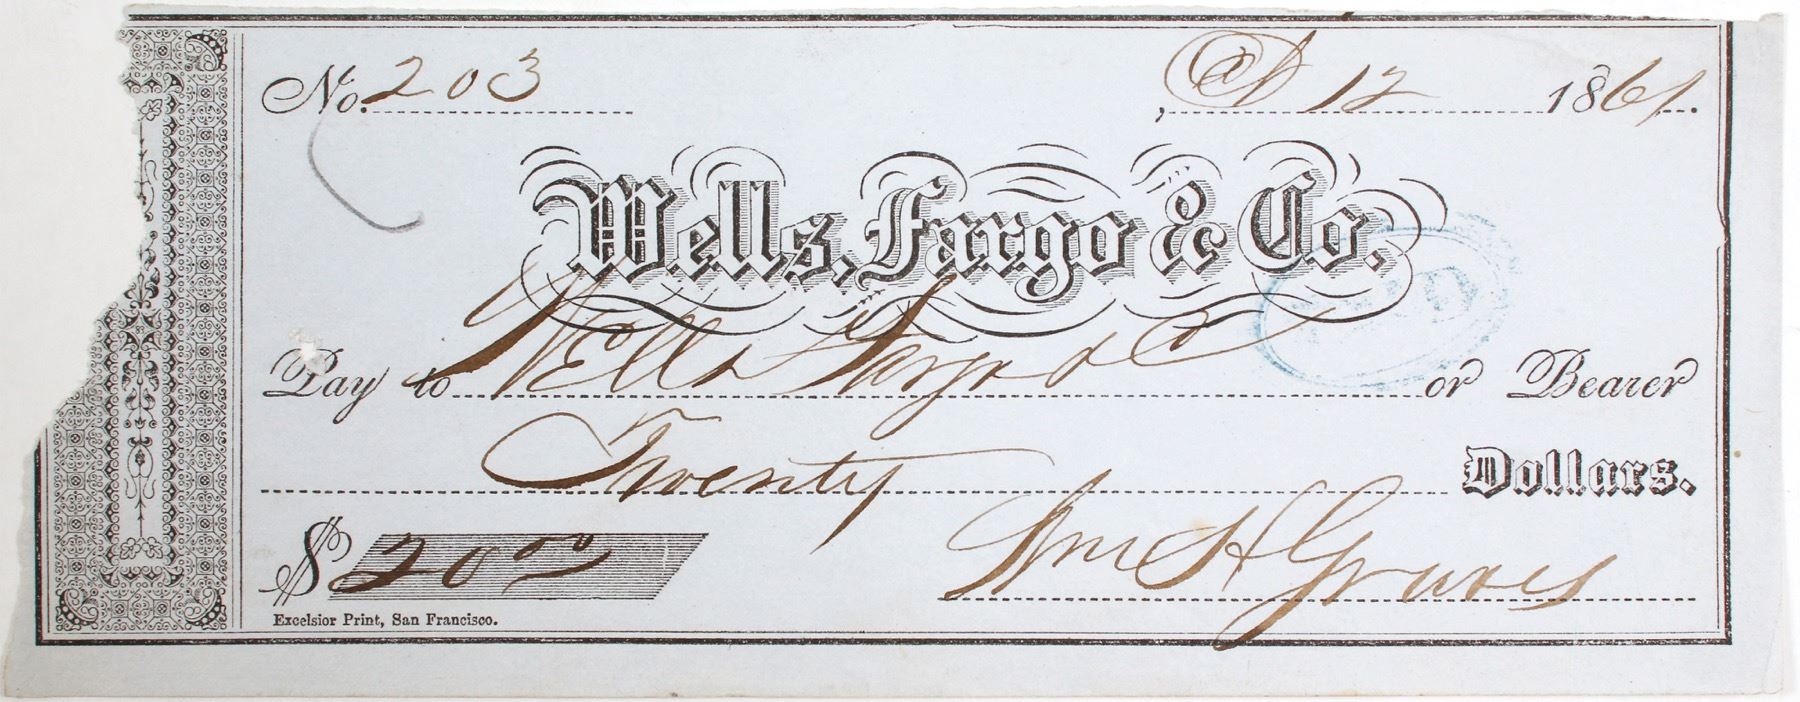 No. 203
, Oct 12 1861.
Wells, Fargo & Co.
Pay to Wells Fargo & Co or Bearer
Twenty Dollars.
$ 20 00
Wm H Graves
Excelsior Print, San Francisco.